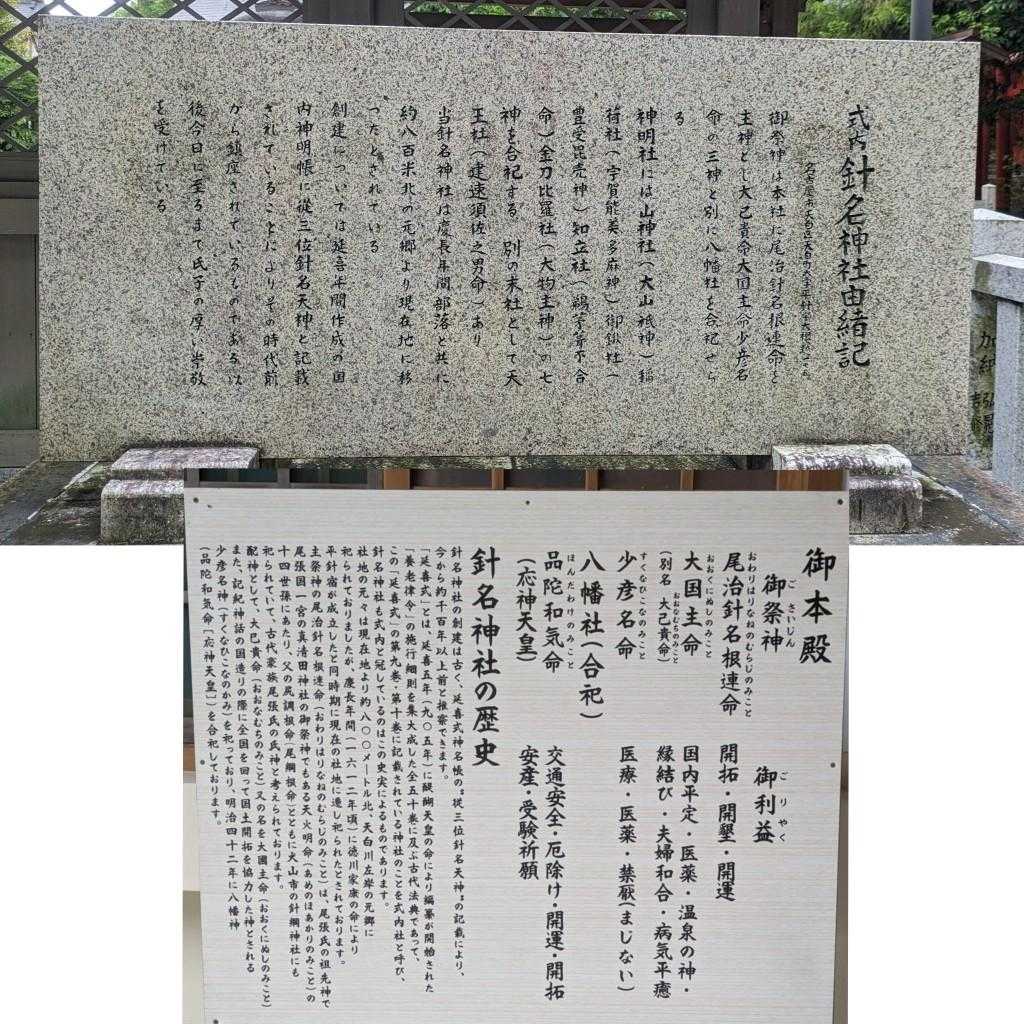 式内針名神社由緒記
御祭神は本社に尾治針名根連命を
主神とし大己貴命大国主命少彦名
命の三神と別に八幡社を合祀せら
る
神明社には山神社(大山祇神)稲
荷社(宇賀能美多麻神)御鍬社(
豊受毘売神)知立社(鵜茅葺不合
命)金刀比羅社(大物主神)の七
神を合祀する 別の末社として天
王社(建速須佐之男命)あり
当針名神社は慶長年間部落と共に
約八百米北の元郷より現在地に移
つたとされている
創建については延喜年間作成の国
内神明帳に従三位針名天神と記載
されていることによりその時代前
から鎮座されているものである以
後今日に至るまで氏子の厚い崇敬
を受けている
加納
御本殿
御祭神
ごさいじん
御利益
ごりやく
尾治針名根連命
おわりはりなねのむらじのみこと
開拓・開墾・開運
大国主命
おおくにぬしのみこと
(別名 大己貴命)
おおなむちのみこと
国内平定・医薬・温泉の神・
縁結び・夫婦和合・病気平癒
少彦名命
すくなひこなのみこと
医療・医薬・禁厭(まじない)
八幡社(合祀)
品陀和気命
ほんだわけのみこと
(応神天皇)
交通安全・厄除け・開運・開拓
安産・受験祈願
針名神社の歴史
針名神社の創建は古く、延喜式神名帳の〝従三位針名天神〟の記載により、
今から約千年以上前と推察できます。
「延喜式」とは、延喜五年(九〇五年)に醍醐天皇の命により編纂が開始された
「養老律令」の施行細則を集大成した全五十巻に及ぶ古代法典であって、
この「延喜式」の第九巻・第十巻に記載されている神社のことを式内社と呼び、
針名神社も式内と冠しているのはこの史実によるものであります。
社地の元々は現在地より約八〇〇メートル北、天白川左岸の元郷に
祀られておりましたが、慶長年間(一六一二年頃)に徳川家康の命により
平針宿が成立したと同時期に現在の社地に遷し祀られたとされております。
主祭神の尾治針名根連命(おわりはりなねのむらじのみこと)は、尾張氏の祖先神で
尾張国一宮の真清田神社の御祭神でもある天火明命(あめのほあかりのみこと)の
十四世孫にあたり、父の尻調根命(尾綱根命)とともに犬山市の針綱神社にも
祀られていて、古代豪族尾張氏の氏神と考えられております。
配神として、大己貴命(おおなむちのみこと)又の名を大國主命(おおくにぬしのみこと)
また、記紀神話の国造りの際に全国を回って国土開拓を協力した神とされる
少彦名命(すくなひこなのかみ)を祀っており、明治四十二年に八幡神
(品陀和気命〔応神天皇〕)を合祀しております。